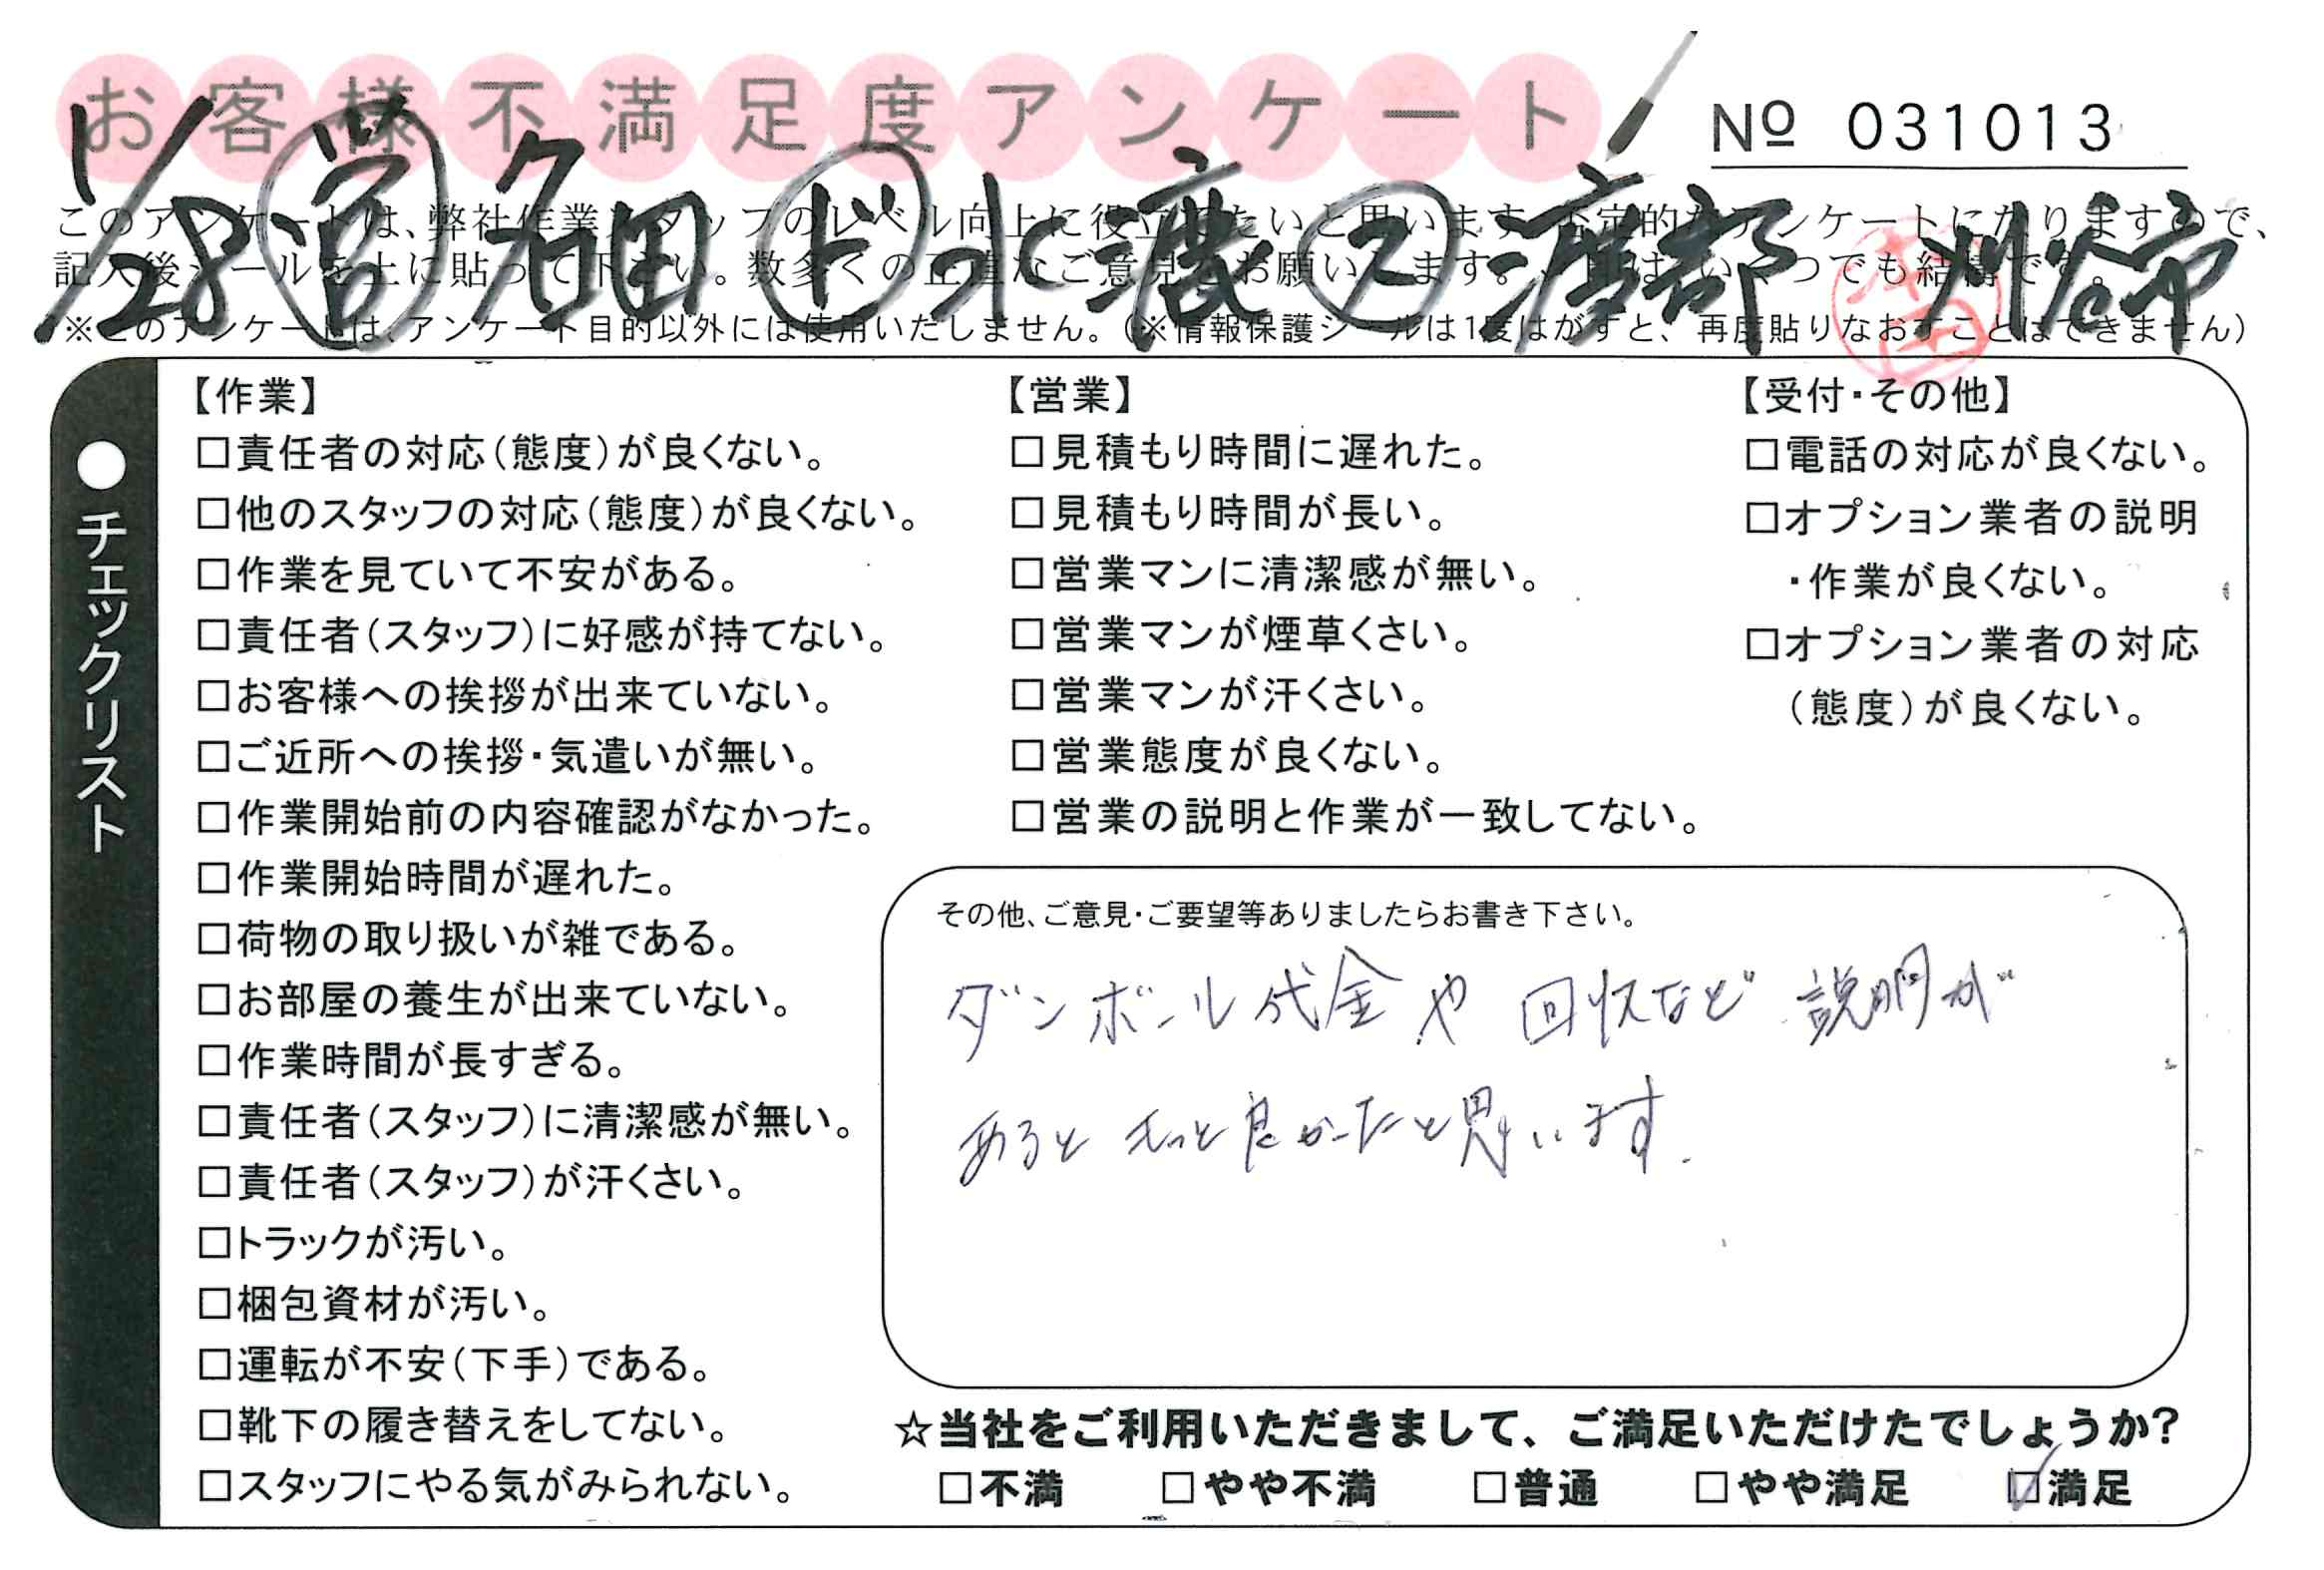 お客様不満足度アンケート
№ 031013
1/28 営 名田 ド 水漉 ス 渡部 刈谷市
このアンケートは、弊社作業スタッフのレベル向上に役立てたいと思います。否定的なアンケートになりますので、
記入後シールを上に貼って下さい。数多くの正直なご意見をお願いします。
※このアンケートは、アンケート目的以外には使用いたしません。（※情報保護シールは1度はがすと、再度貼りなおすことはできません）
●チェックリスト
【作業】
□責任者の対応（態度）が良くない。
□他のスタッフの対応（態度）が良くない。
□作業を見ていて不安がある。
□責任者（スタッフ）に好感が持てない。
□お客様への挨拶が出来ていない。
□ご近所への挨拶・気遣いが無い。
□作業開始前の内容確認がなかった。
□作業開始時間が遅れた。
□荷物の取り扱いが雑である。
□お部屋の養生が出来ていない。
□作業時間が長すぎる。
□責任者（スタッフ）に清潔感が無い。
□責任者（スタッフ）が汗くさい。
□トラックが汚い。
□梱包資材が汚い。
□運転が不安（下手）である。
□靴下の履き替えをしてない。
□スタッフにやる気がみられない。
【営業】
□見積もり時間に遅れた。
□見積もり時間が長い。
□営業マンに清潔感が無い。
□営業マンが煙草くさい。
□営業マンが汗くさい。
□営業態度が良くない。
□営業の説明と作業が一致してない。
【受付・その他】
□電話の対応が良くない。
□オプション業者の説明
・作業が良くない。
□オプション業者の対応
（態度）が良くない。
その他、ご意見・ご要望等ありましたらお書き下さい。
ダンボール代金や回収など説明が
あるともっと良かったと思います.
☆当社をご利用いただきまして、ご満足いただけたでしょうか?
□不満 □やや不満 □普通 □やや満足 ☑満足